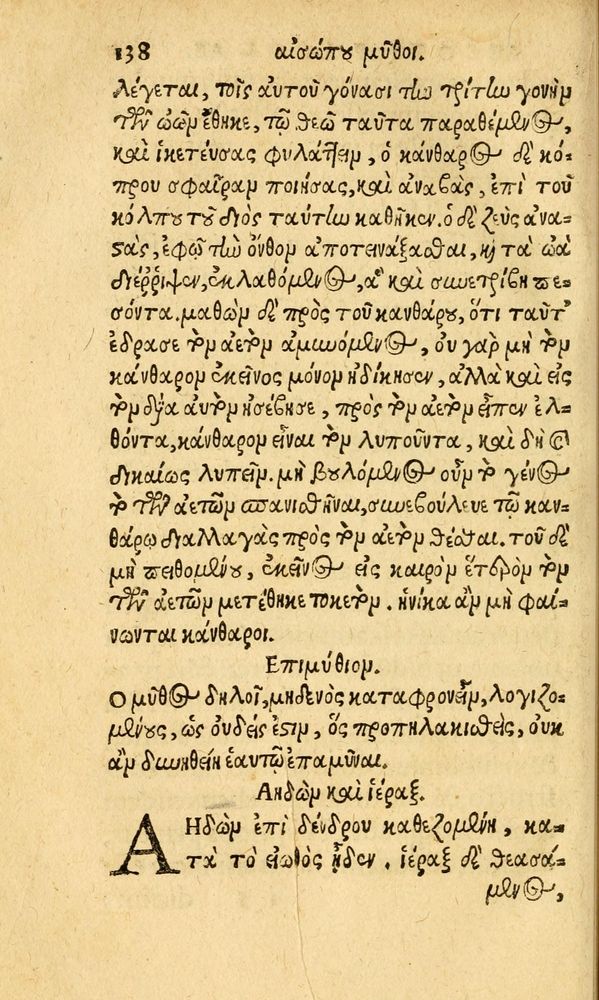 138 αἰσώπου μῦθοι.
λέγεται, τοῖς αὐτοῦ γόνασι τὴν τρίτην γονὴν
τῶν ὠῶν ἔθηκε, τῷ θεῷ ταῦτα παραθέμενος,
καὶ ἱκετεύσας φυλάττειν, ὁ κάνθαρος δὲ κό-
πρου σφαῖραν ποιήσας, καὶ ἀναβὰς, ἐπὶ τοῦ
κόλπου τοῦ διὸς ταύτην καθῆκεν. ὁ δὲ ζεὺς ἀνα-
στὰς, ἐφ' ᾧ τὴν ὄνθον ἀποτεινάξασθαι, καὶ τὰ ὠὰ
διέῤῥιψεν, ἐκλαθόμενος, ἃ καὶ συνετρίβη πε-
σόντα. μαθὼν δὲ πρὸς τοῦ κανθάρου, ὅτι ταῦτ'
ἔδρασε τὸν ἀετὸν ἀμυνόμενος, οὐ γὰρ μὴ τὸν
κάνθαρον ἐκεῖνος μόνον ἠδίκησεν, ἀλλὰ καὶ εἰς
τὸν δία αὐτὸν ἠσέβησε, πρὸς τὸν ἀετὸν εἶπεν ἐλ-
θόντα, κάνθαρον εἶναι τὸν λυποῦντα, καὶ δὴ καὶ
δικαίως λυπεῖν. μὴ βουλόμενος οὖν τὸ γένος
τὸ τῶν ἀετῶν σπανισθῆναι, συνεβούλευε τῷ καν-
θάρῳ διαλλαγὰς πρὸς τὸν ἀετὸν θέσθαι. τοῦ δὲ
μὴ πειθομένου, ἐκεῖνος εἰς καιρὸν ἕτερον τὸν
τῶν ἀετῶν μετέθηκε τοκετὸν. ἡνίκα ἂν μὴ φαί-
νωνται κάνθαροι.
Επιμύθιον.
Ο μῦθος δηλοῖ, μηδενὸς καταφρονεῖν, λογιζο-
μένους, ὡς οὐδείς ἐστιν, ὃς προπηλακισθεὶς, οὐκ
ἂν δυνηθείη ἑαυτῷ ἐπαμῦναι.
Αηδὼν καὶ ἱέραξ.
ΑΗδὼν ἐπὶ δένδρου καθεζομένη, κα-
τὰ τὸ εἰωθὸς ᾖδεν. ἱέραξ δὲ θεασά-
μενος,